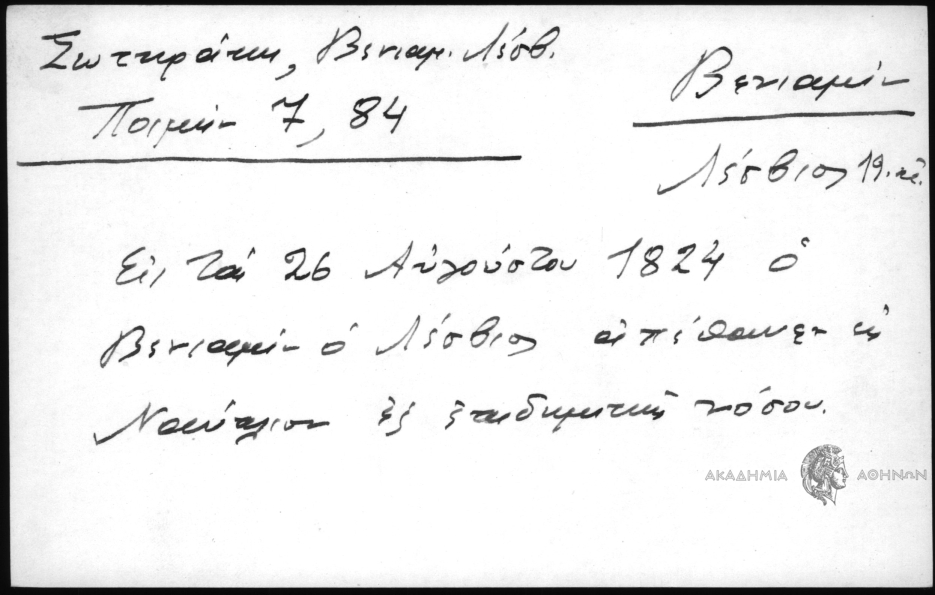 Σωτηράκη, Βενιαμ. Λέσβ.
Ποιμήν 7, 84
Βενιαμὶν
Λέσβιος 19. αἰ.
Εἰς τὰς 26 Αὐγούστου 1824 ὁ
Βενιαμὶν ὁ Λέσβιος ἀπέθανεν εἰς
Ναύπλιον ἐξ ἐπιδημικῆς νόσου.
ΑΚΑΔΗΜΙΑ ΑΘΗΝΩΝ